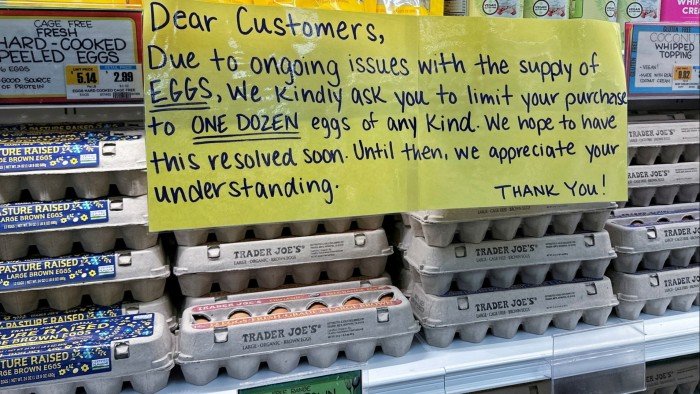 Dear Customers,
Due to ongoing issues with the supply of
EGGS, We Kindly ask you to limit your purchase
to ONE DOZEN eggs of any Kind. We hope to have
this resolved soon. Until then, we appreciate your
understanding.
THANK YOU!
CAGE FREE
FRESH
HARD-COOKED
PEELED EGGS
6 EGGS
GOOD SOURCE
OF PROTEIN
5.14
2.99
COCONUT
WHIPPED
TOPPING
VEGAN
PASTURE RAISED
LARGE BROWN EGGS
PASTURE RAISED
LARGE BROWN EGGS
PASTURE RAISED
LARGE BROWN EGGS
PASTURE RAISED
PASTURE RAISED
LARGE BROWN EGGS
TRADER JOE'S
LARGE · ORGANIC · BROWN EGGS
TRADER JOE'S
LARGE · ORGANIC · BROWN EGGS
TRADER JOE'S
TRADER JOE'S
TRADER JOE'S
TRADER JOE'S
TRADER JOE'S
TRADER JOE'S
TRADER JOE'S